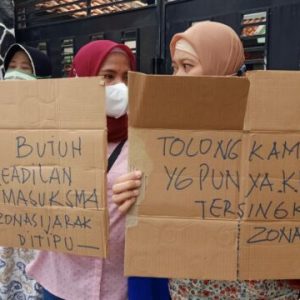 BUTUH
KEADILAN
MASUK SMA
ZONASI JARAK
DITIPU
TOLONG KAM
YG PUNYA K
TERSINGK
ZONA